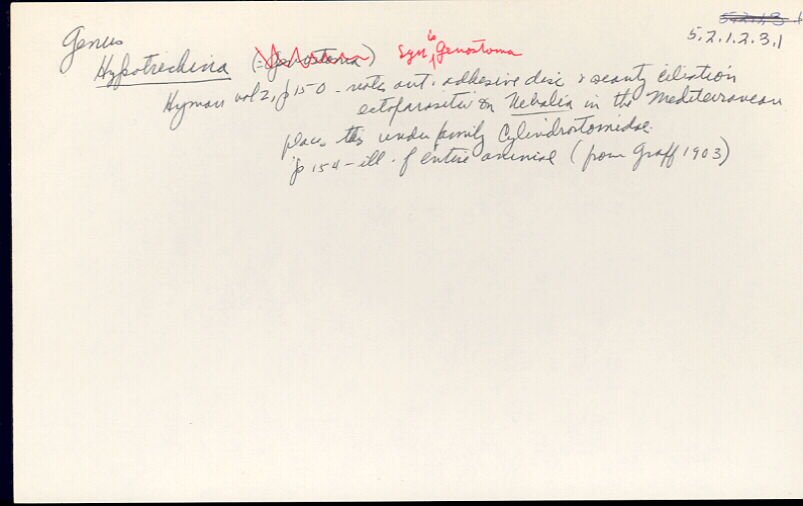 5.2.1.3.1
5.2.1.2.3.1
Genus
Hypotrichina (= Genostoma) Syn. to Genostoma
Hyman vol 2, p 150 - notes ant. adhesive disc & scanty ciliation
ectoparasitic on Nebalia in the Mediterranean
places this under family Cylindrostomidae.
p 154 - ill. of entire animal (from Graff 1903)